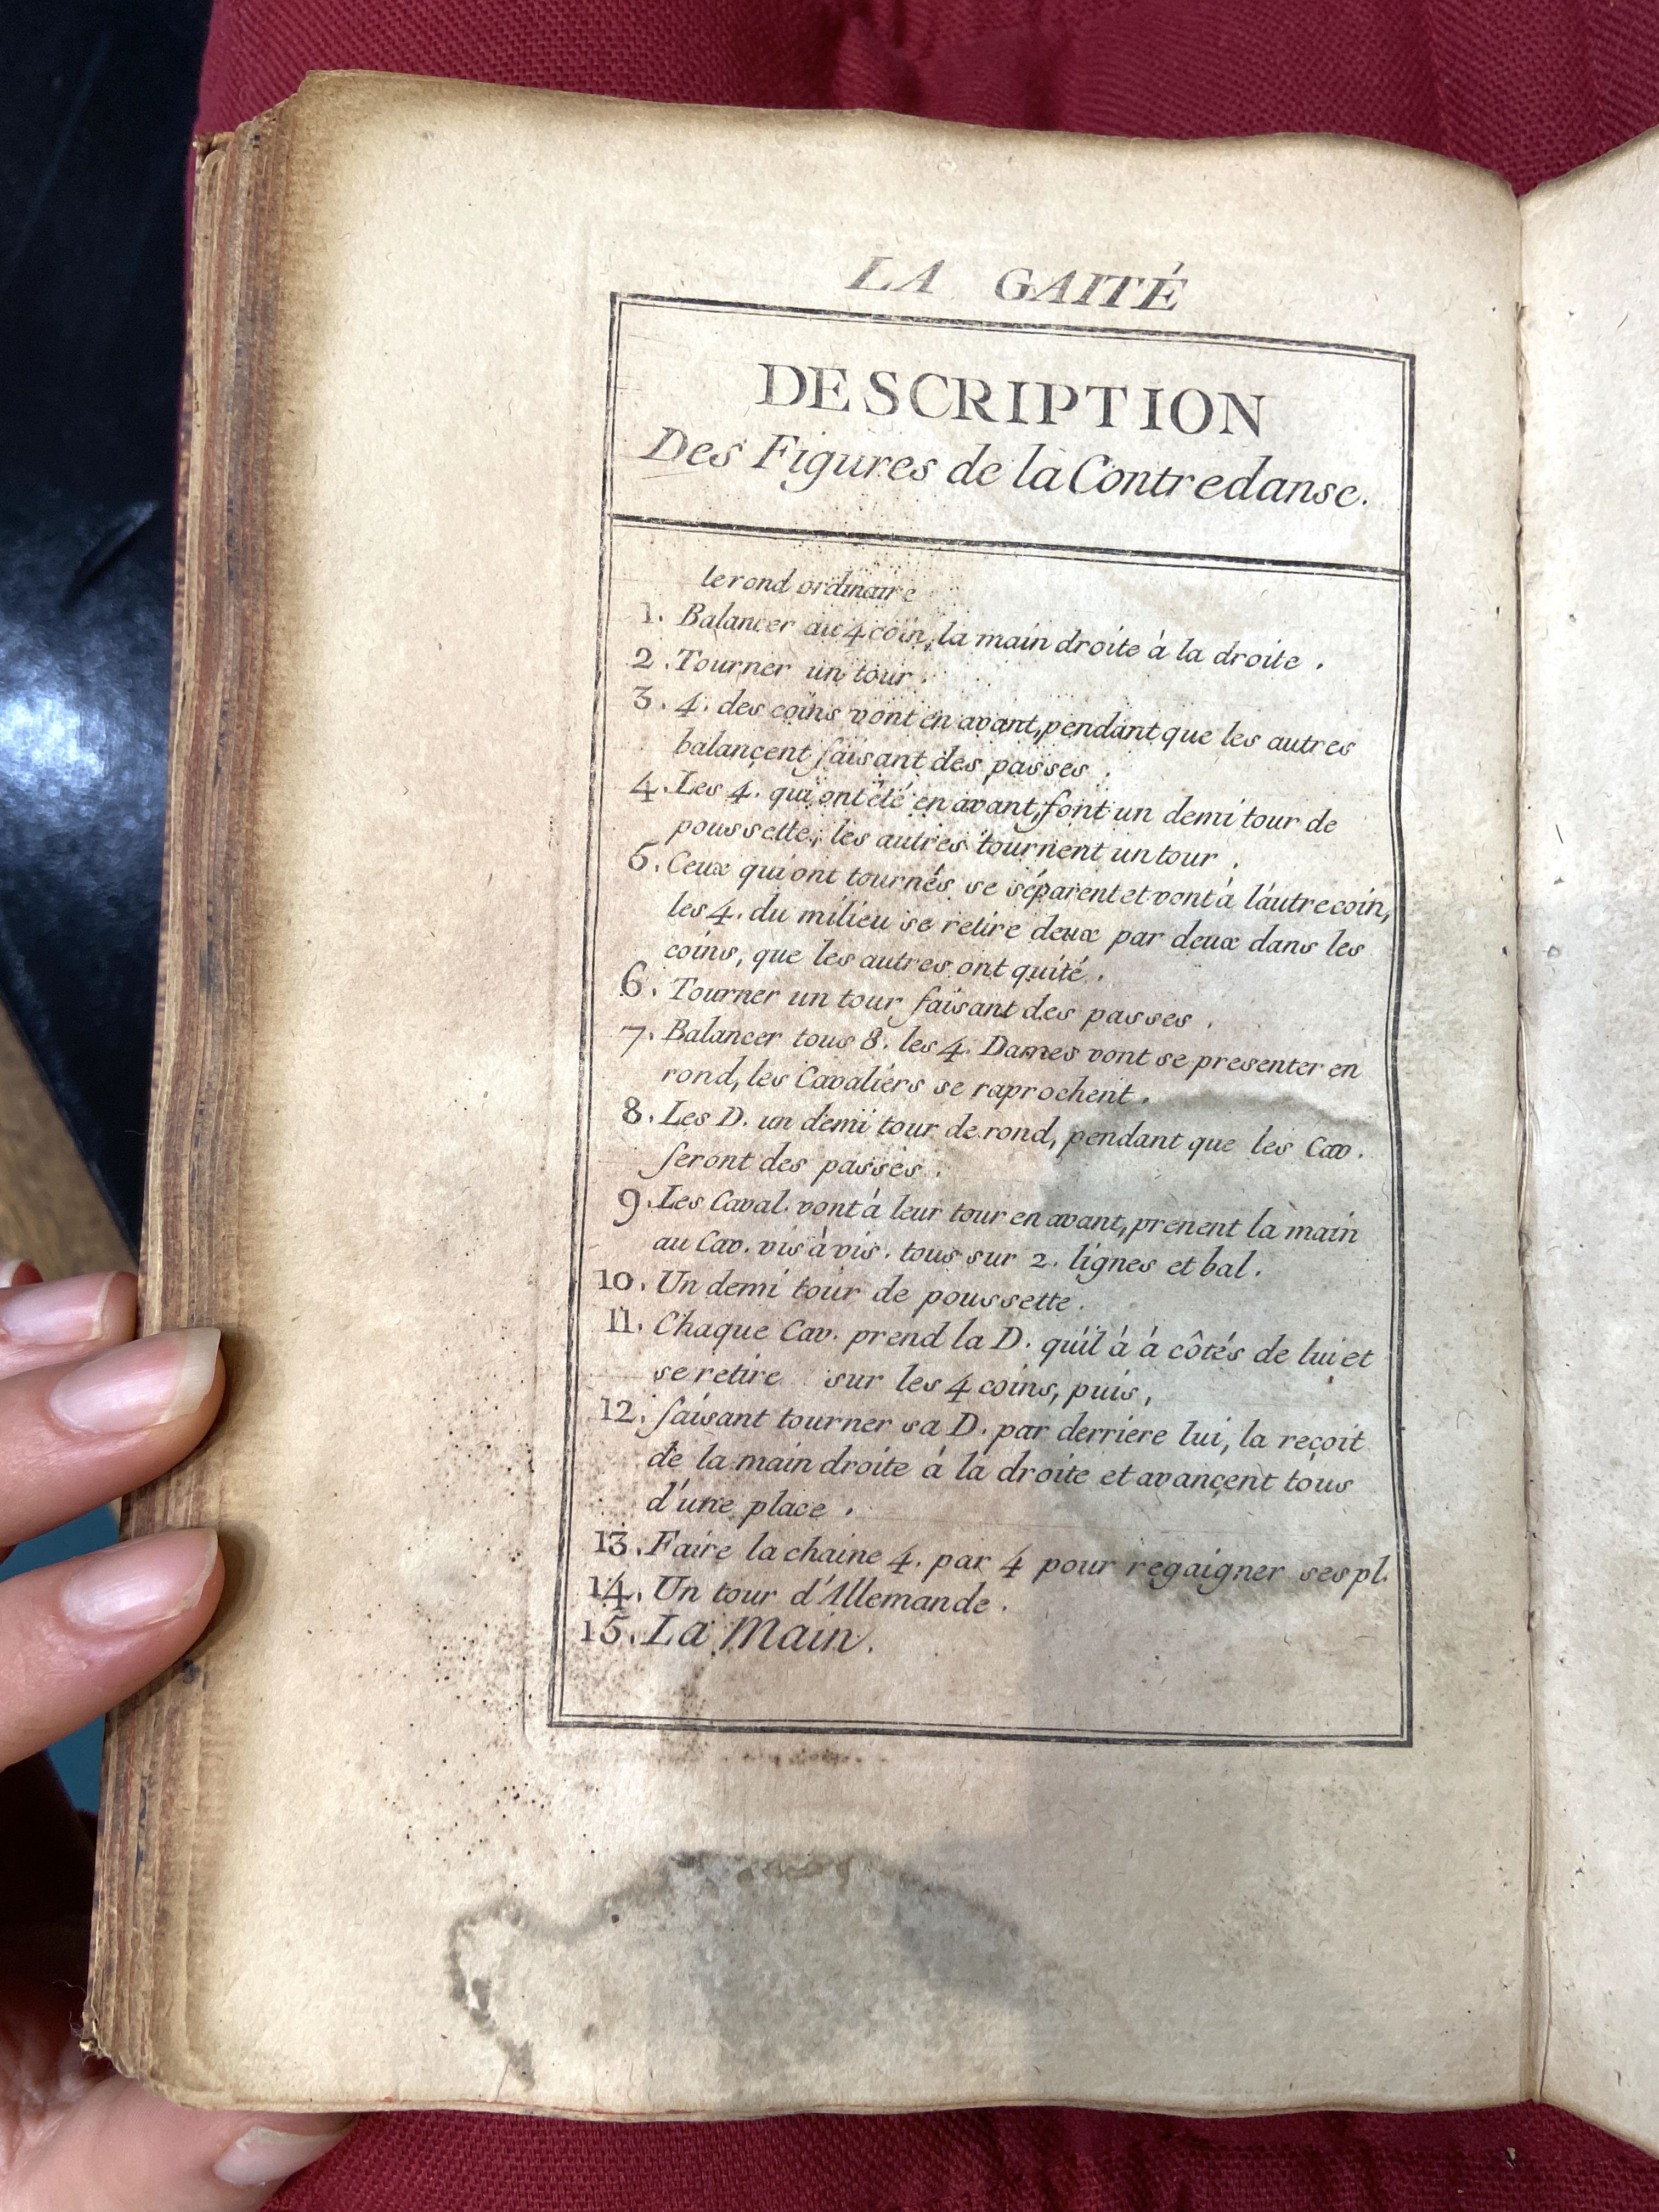 LA GAITÉ
DESCRIPTION
Des Figures de la Contredanse.
le rond ordinaire
1. Balancer au 4 coin, la main droite à la droite.
2. Tourner un tour.
3. 4. des coins vont en avant, pendant que les autres
balançent faisant des passes.
4. Les 4. qui ont été en avant, font un demi tour de
poussette, les autres tournent un tour.
5. Ceux qui ont tournés se séparent et vont à l'autre coin,
les 4. du milieu se retire deux par deux dans les
coins, que les autres ont quité.
6. Tourner un tour faisant des passes.
7. Balancer tous 8. les 4. Dames vont se presenter en
rond, les Cavaliers se raprochent.
8. Les D. un demi tour de rond, pendant que les Cav.
feront des passes.
9. Les Caval. vont à leur tour en avant, prenent la main
au Cav. vis à vis. tous sur 2. lignes et bal.
10. Un demi tour de poussette.
11. Chaque Cav. prend la D. qu'il à à côtés de lui et
se retire sur les 4 coins, puis,
12. faisant tourner sa D. par derriere lui, la reçoit
de la main droite à la droite et avançent tous
d'une place.
13. Faire la chaine 4. par 4 pour regaigner ses pl.
14. Un tour d'Allemande.
15. La Main.